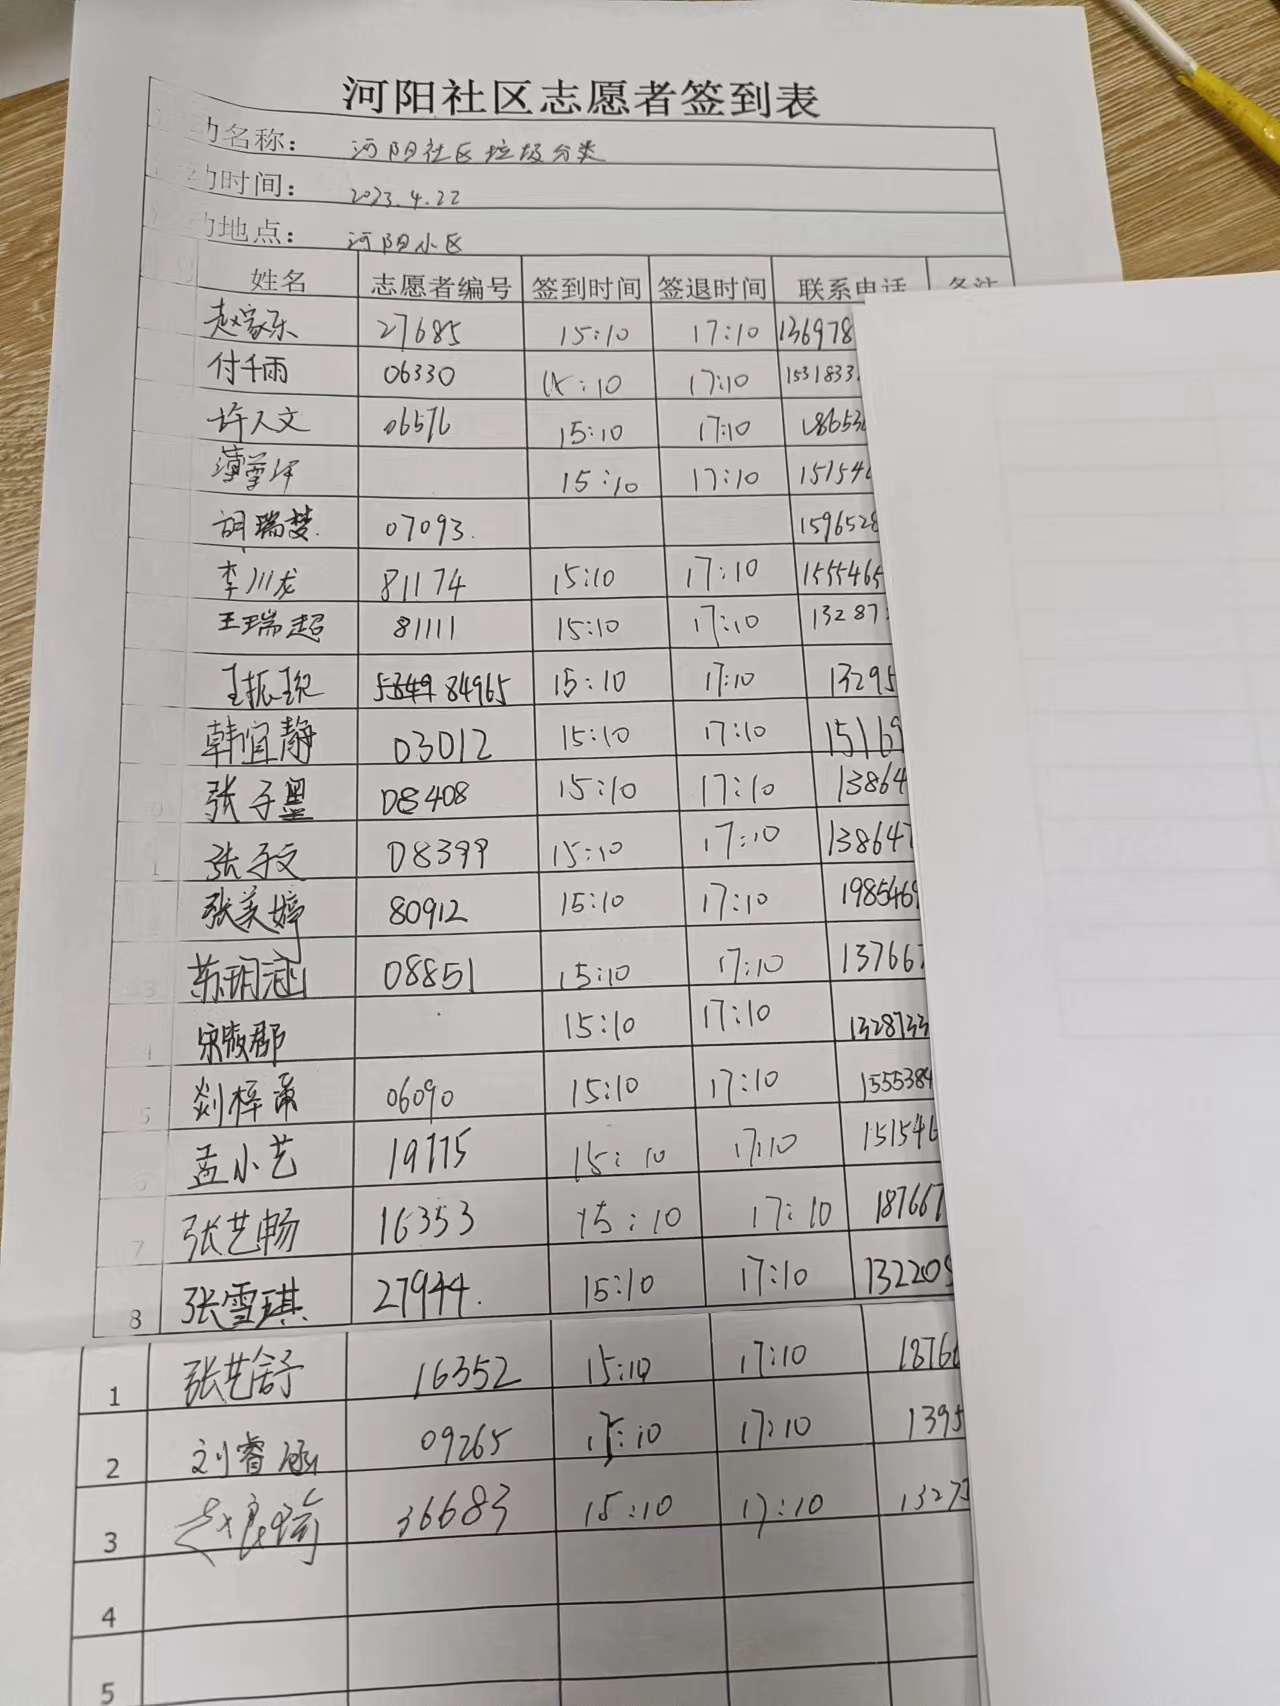 河阳社区志愿者签到表
动名称： 河阳社区垃圾分类
动时间： 2023.4.22
地点： 河阳小区
姓名 志愿者编号 签到时间 签退时间 联系电话 备注
赵家乐 27685 15:10 17:10 136978
付千雨 06330 15:10 17:10 1531833
许人文 06576 15:10 17:10 18653
15:10 17:10 15154
胡瑞梦. 07093. 1596528
李川龙 81174 15:10 17:10 1555465
王瑞超 81111 15:10 17:10 13287
王振琨 84965 15:10 17:10 13295
韩宜静 03012 15:10 17:10 15169
张子墨 08408 15:10 17:10 13864
1 张子文 08399 15:10 17:10 138647
张美婷 80912 15:10 17:10 1985469
苏玥涵 08851 15:10 17:10 137667
15:10 17:10 1328733
5 06090 15:10 17:10 1555384
孟小艺 19775 15:10 17:10 151546
7 张艺畅 16353 15:10 17:10 187667
8 张雪琪 27944. 15:10 17:10 132209
1 张艺舒 16352 15:10 17:10 1876
2 刘睿涵 09265 15:10 17:10 1395
3 36683 15:10 17:10 1327
4
5